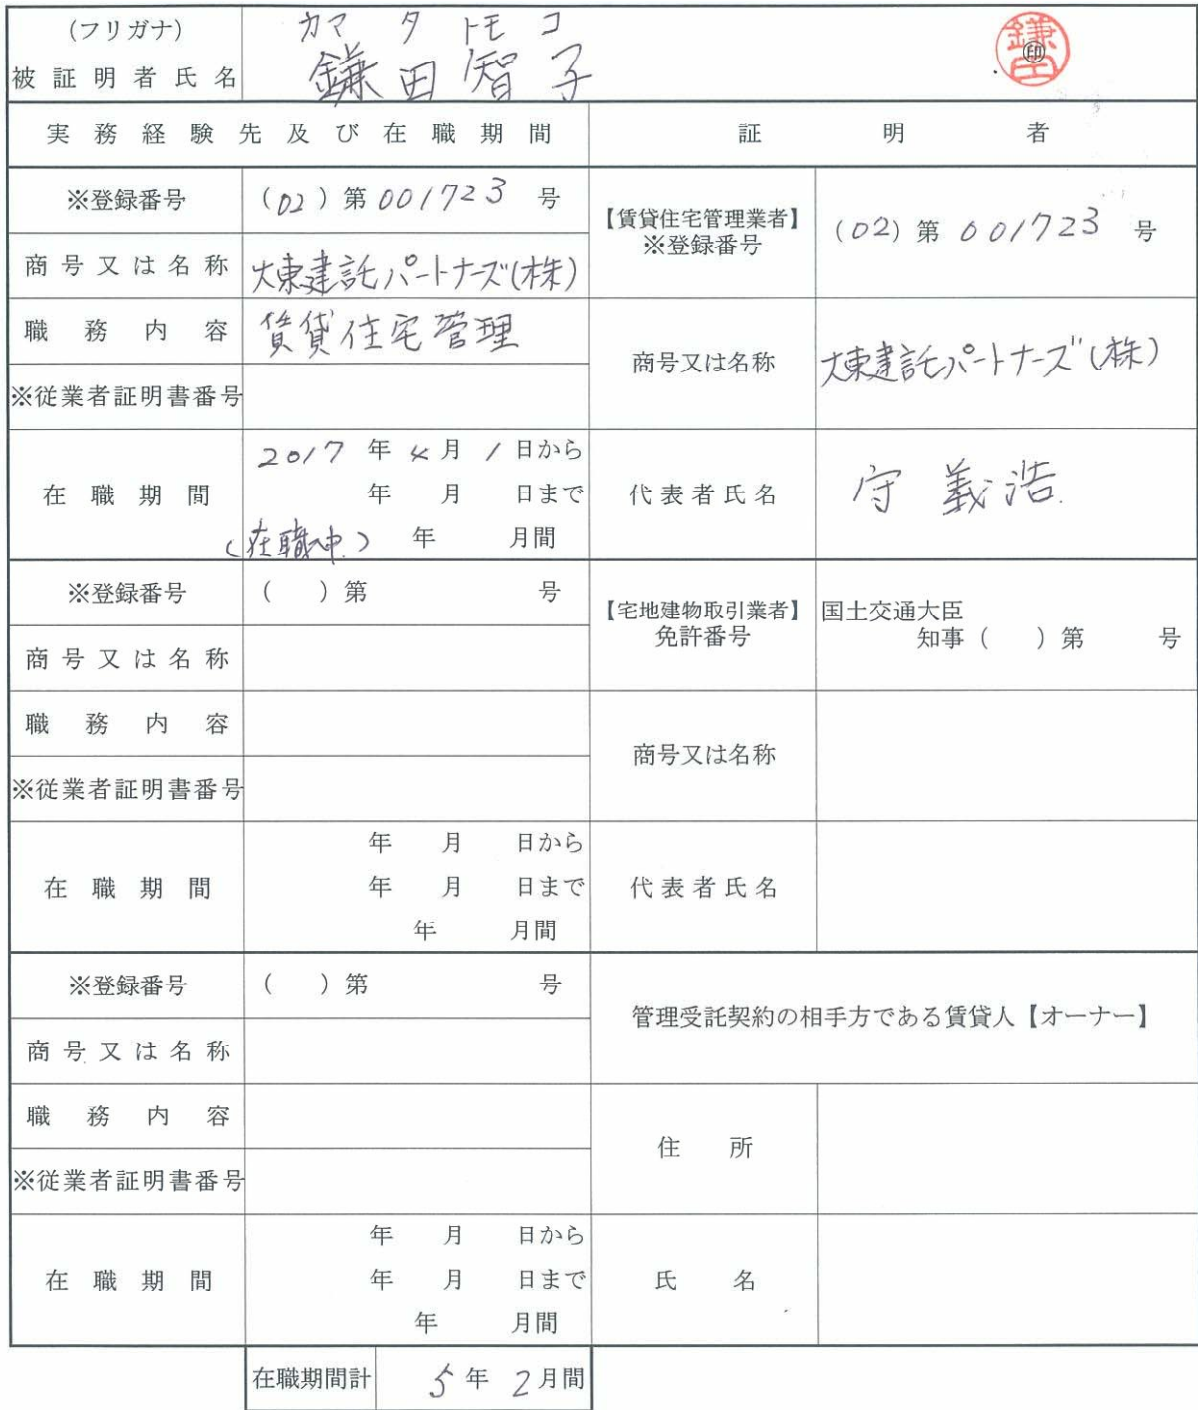 (フリガナ) カマ タ トモコ
被証明者氏名 鎌田智子 鎌田 ㊞
実務経験先及び在職期間 証明者
※登録番号 (02)第001723号
【賃貸住宅管理業者】
※登録番号 (02)第001723号
商号又は名称 大東建託パートナーズ(株)
職務内容 賃貸住宅管理
商号又は名称 大東建託パートナーズ(株)
※従業者証明書番号
在職期間
2017年4月1日から
年 月 日まで
(在職中) 年 月間
代表者氏名 守義浩
※登録番号 ( )第 号
【宅地建物取引業者】
免許番号
国土交通大臣
知事( )第 号
商号又は名称
職務内容
商号又は名称
※従業者証明書番号
在職期間
年 月 日から
年 月 日まで
年 月間
代表者氏名
※登録番号 ( )第 号
管理受託契約の相手方である賃貸人【オーナー】
商号又は名称
職務内容
住所
※従業者証明書番号
在職期間
年 月 日から
年 月 日まで
年 月間
氏名
在職期間計 5年2月間